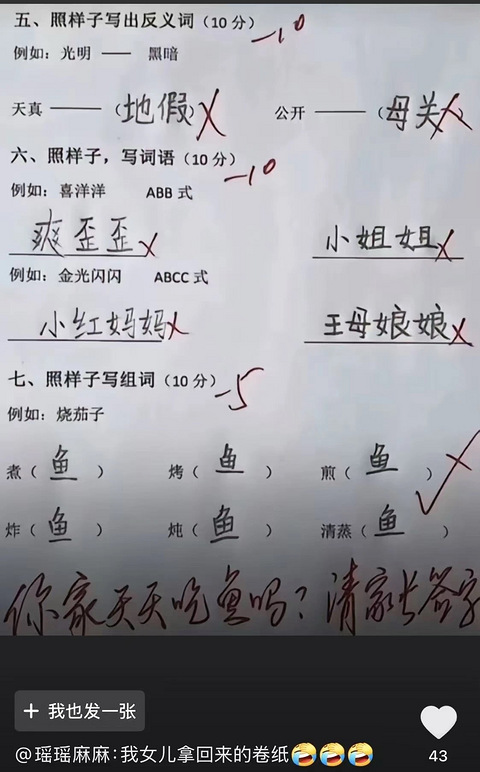 五、照样子写出反义词（10 分） -10
例如：光明 —— 黑暗
天真 ——（地假） 公开 ——（母关）
六、照样子，写词语（10 分） -10
例如：喜洋洋 ABB 式
爽歪歪 小姐姐
例如：金光闪闪 ABCC 式
小红妈妈 王母娘娘
七、照样子写组词（10 分） -5
例如：烧茄子
煮（鱼） 烤（鱼） 煎（鱼）
炸（鱼） 炖（鱼） 清蒸（鱼）
你家天天吃鱼吗？请家长签字
+ 我也发一张
@瑶瑶麻麻：我女儿拿回来的卷纸🤣🤣🤣 43